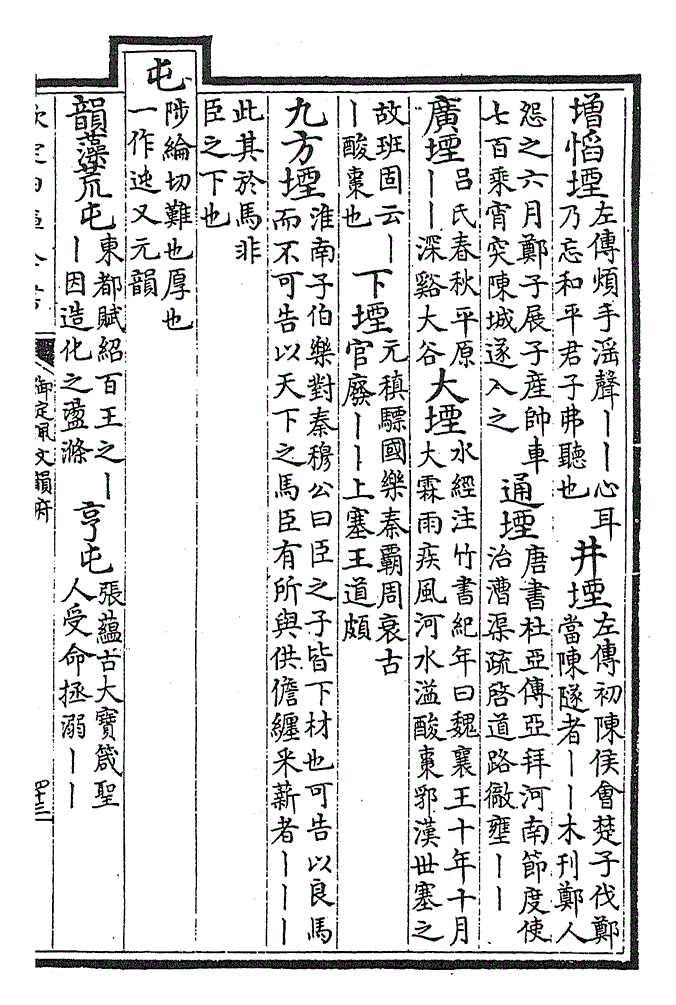 增慆堙
左傳煩手滛聲丨丨心耳
乃忘和平君子弗聽也
井堙
左傳初陳侯會楚子伐鄭
當陳隧者丨丨木刊鄭人
怨之六月鄭子展子産帥車
七百乘宵突陳城遂入之
通堙
唐書杜亞傳亞拜河南節度使
治漕渠疏啓道路徹壅丨丨
廣堙
呂氏春秋平原
丨丨深谿大谷
大堙
水經注竹書紀年曰魏襄王十年十月
大霖雨疾風河水溢酸棗郛漢世塞之
故班固云丨
丨酸棗也
下堙
元稹驃國樂秦霸周衰古
官廢丨丨上塞王道頗
九方堙
淮南子伯樂對秦穆公曰臣之子皆下材也可告以良馬
而不可告以天下之馬臣有所與供儋纏采薪者丨丨丨
此其於馬非
臣之下也
屯
陟綸切難也厚也
一作迍又元韻
韻藻荒屯
東都賦紹百王之丨
丨因造化之盪滌
亨屯
張蘊古大寶箴聖
人受命拯溺丨丨
欽定四庫全書
御定佩文韻府
四十三